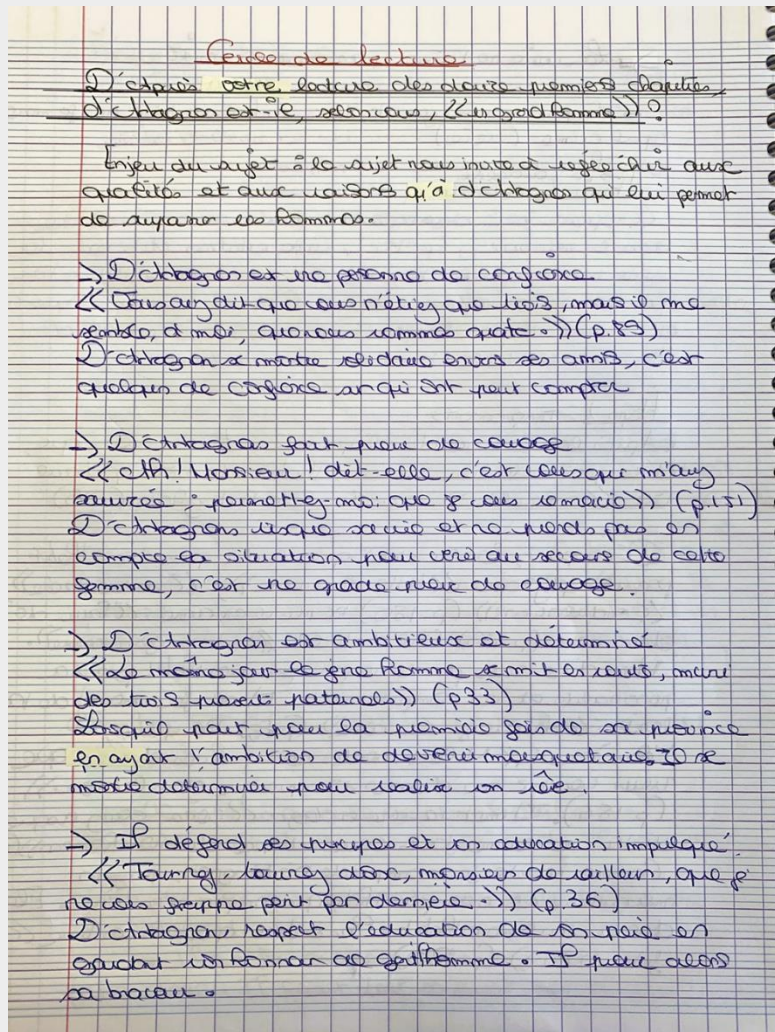 Cercle de lecture
D'Après votre lecture des douze premiers chapitres,
d'Artagnan est-il, selon vous, << un grand homme >> ?
Enjeu du sujet : le sujet nous invite à réfléchir aux
qualités et aux raisons qu'à d'Artagnan qui lui permet
de surpasser les hommes.
-> D'Artagnan est une personne de confiance
<< Vous avez dit que vous n'étiez que trois, mais il me
semble, à moi, que nous sommes quatre. >> (p.83)
D'Artagnan se montre solidaire envers ses amis, c'est
quelqu'un de confiance sur qui ont peut compter
-> D'Artagnan fait preuve de courage
<< Ah ! Monsieur ! dit-elle, c'est vous qui m'avez
sauvée ; permettez-moi que je vous remercie >> (p.151)
D'Artagnan risque sa vie et ne prends pas en
compte la situation pour venir au secours de cette
femme, c'est une grande preuve de courage.
-> D'Artagnan est ambitieux et déterminé
<< Le même jour le jeune homme se mit en route, muni
des trois présents paternels >> (p33)
Lorsquil part pour la première fois de sa province
en ayant l'ambition de devenir mousquetaire. Il se
montre déterminer pour réaliser son rêve.
-> Il défend ses principes et son éducation impulqué.
<< Tournez, tournez donc, monsieur le railleur, que je
ne vous frappe point par derrière. >> (p.36)
D'Artagnan respect l'education de son père en
gardant son honneur de gentilhomme. Il prouve alors
sa bravoure.